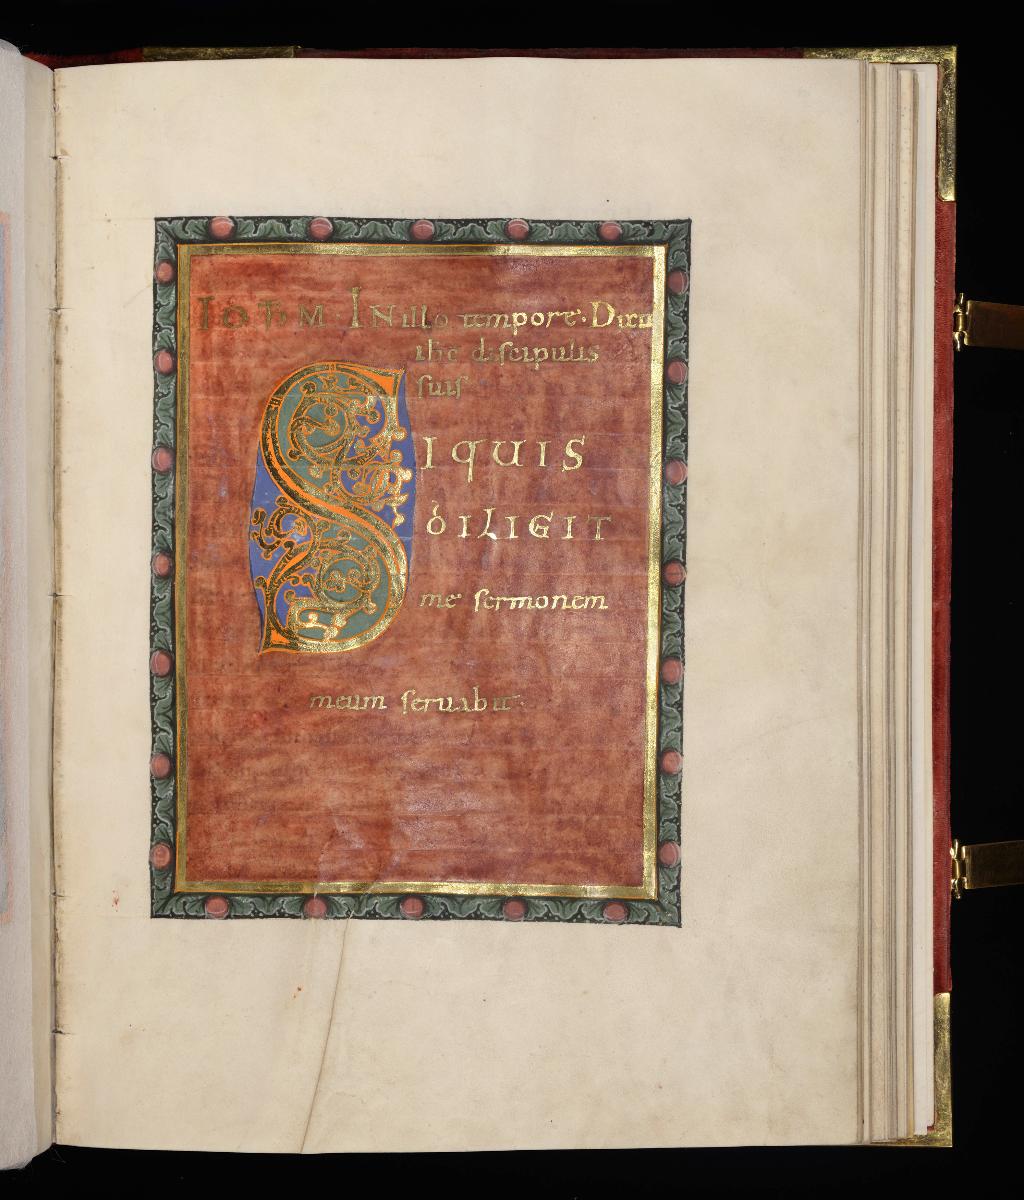 IOHM · IN illo tempore · Dixit
ihc discipulis
suis
SIQUIS
DILIGIT
me sermonem
meum seruabit ·